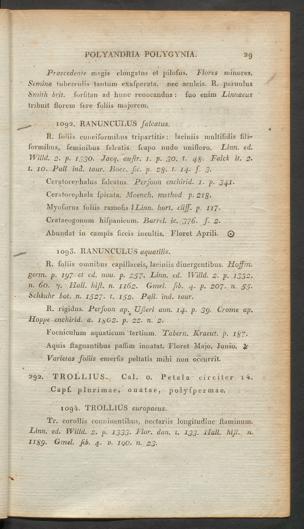 POLYANDRIA POLYGYNIA. 29
Praecedente magis elongatus et pilosus. Flores minores.
Semina tuberculis tantum exasperata, nec aculeis. R. parvulus
Smith brit. forsitan ad hunc revocandus: suo enim Linnaeus
tribuit florem fere foliis majorem.
1092. RANUNCULUS falcatus.
R. foliis cuneiformibus tripartitis: laciniis multifidis fili-
formibus, seminibus falcatis. scapo nudo unifloro. Linn. ed.
Willd. 2. p. 1330. Jacq. austr. 1. p. 30. t. 48. Falck it. 2.
t. 10. Pall ind. taur. Bocc. sic. p. 28. t. 14. f. 3.
Ceratocephalus falcatus. Persoon enchirid. 1. p. 341.
Ceratocephala spicata. Moench. method p. 218.
Myosurus foliis ramosis! Linn. hort. cliff. p. 117.
Crataeogonum hispanicum. Barrel. ic. 376. f. 2.
Abundat in campis siccis incultis. Floret Aprili. ☉
1093. RANUNCULUS aquatilis.
R. foliis omnibus capillaceis, laciniis divergentibus. Hoffm.
germ. p. 197 et ed. nou. p. 257. Linn. ed. Willd. 2. p. 1332.
n. 60. γ. Hall. hist. n. 1162. Gmel. sib. 4. p. 207. n. 55.
Schkuhr bot. n. 1527. t. 152. Pall. ind. taur.
R. rigidus. Persoon ap. Usteri ann. 14. p. 39. Crome ap.
Hoppe enchirid. a. 1802. p. 22. n. 2.
Foeniculum aquaticum tertium. Tabern. Kraeut. p. 187.
Aquis stagnantibus passim innatat. Floret Majo, Junio. ♃
Varietas foliis emersis peltatis mihi non occurrit.
292. TROLLIUS. Cal. 0. Petala circiter 14.
Caps. plurimae, ouatae, polyspermae.
1094. TROLLIUS europaeus.
Tr. corollis conniventibus, nectariis longitudine staminum.
Linn. ed. Willd. 2. p. 1333. Flor. dan. t. 133. Hall. hist. n.
1189. Gmel. sib. 4. p. 190. n. 23.